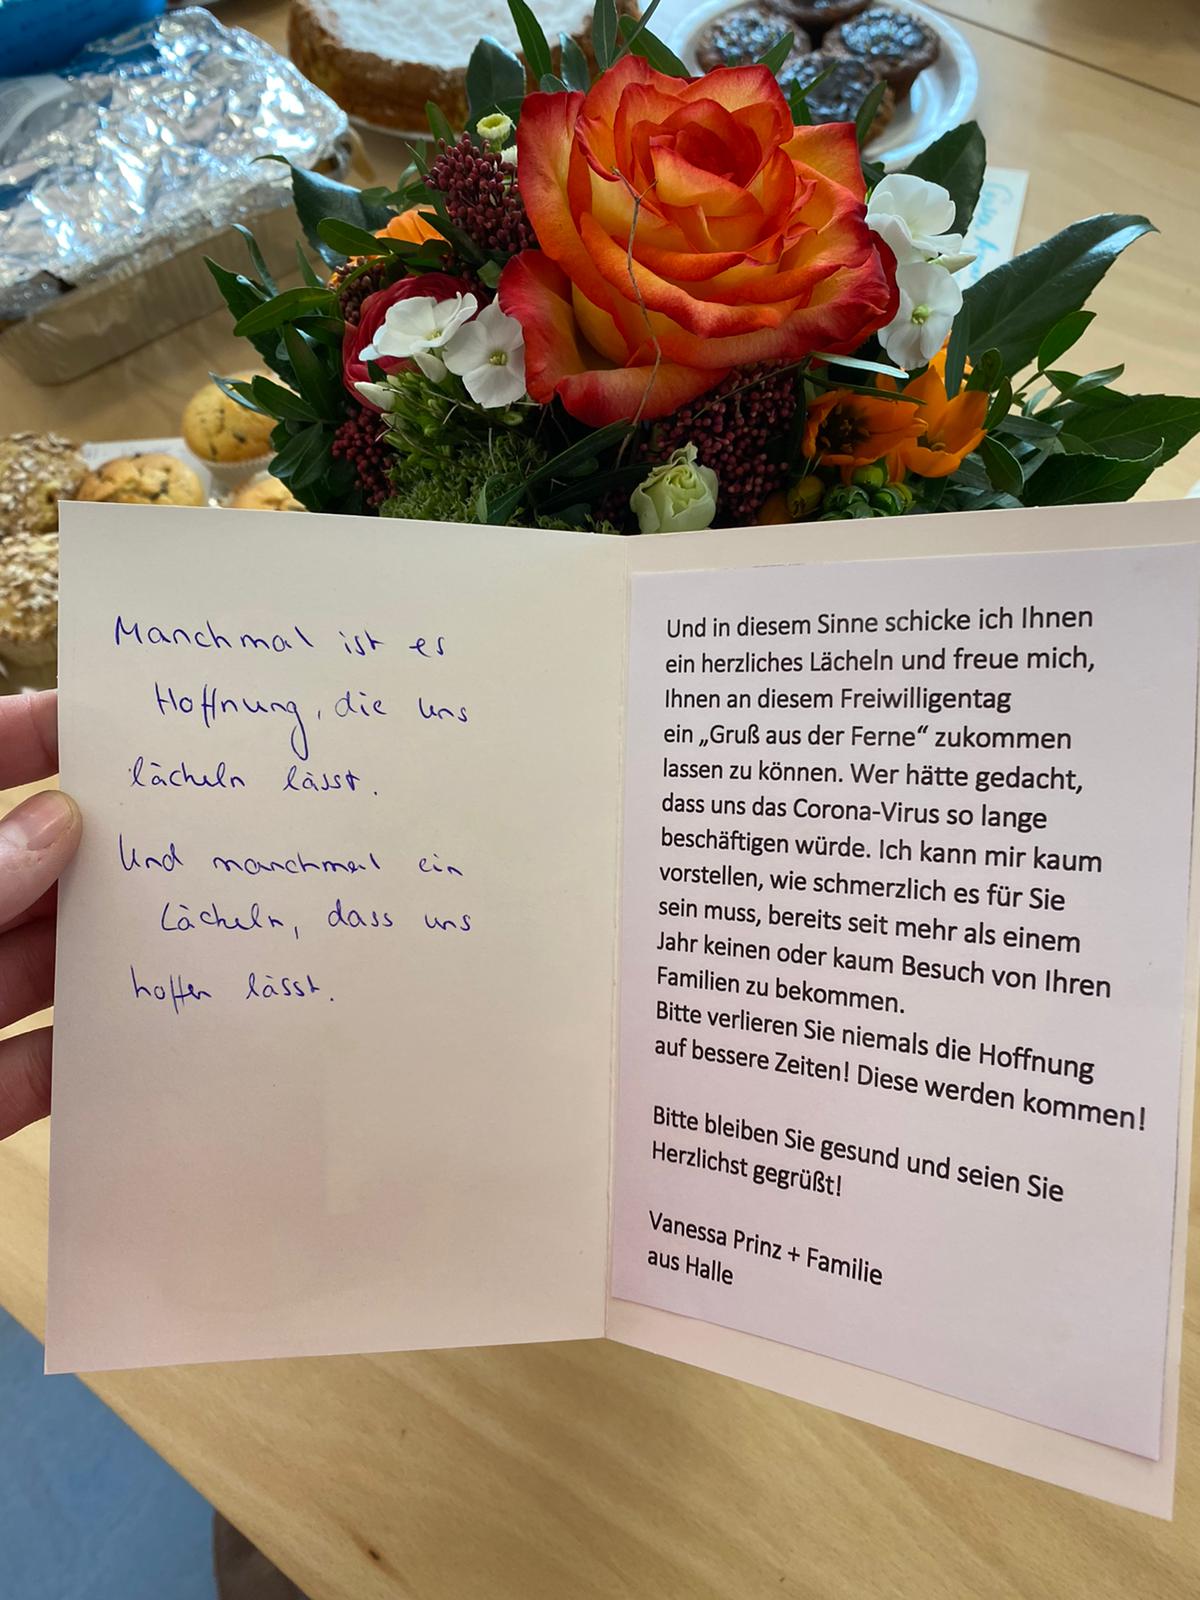 Manchmal ist es
Hoffnung, die uns
lächeln lässt.
Und manchmal ein
Lächeln, dass uns
hoffen lässt.
Und in diesem Sinne schicke ich Ihnen
ein herzliches Lächeln und freue mich,
Ihnen an diesem Freiwilligentag
ein „Gruß aus der Ferne“ zukommen
lassen zu können. Wer hätte gedacht,
dass uns das Corona-Virus so lange
beschäftigen würde. Ich kann mir kaum
vorstellen, wie schmerzlich es für Sie
sein muss, bereits seit mehr als einem
Jahr keinen oder kaum Besuch von Ihren
Familien zu bekommen.
Bitte verlieren Sie niemals die Hoffnung
auf bessere Zeiten! Diese werden kommen!
Bitte bleiben Sie gesund und seien Sie
Herzlichst gegrüßt!
Vanessa Prinz + Familie
aus Halle